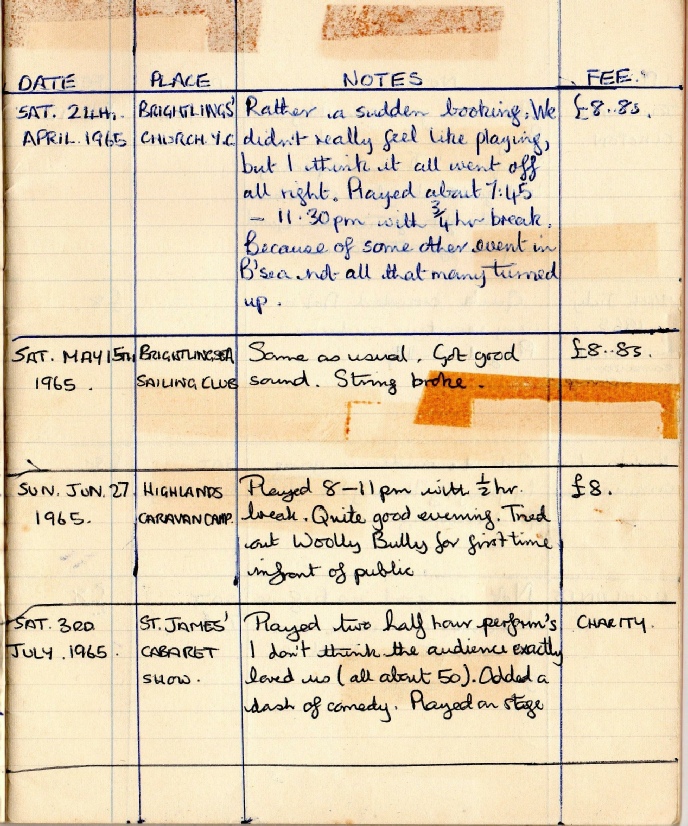 DATE PLACE NOTES FEE.
SAT. 24th. BRIGHTLINGS' Rather a sudden booking. We £8..8s.
APRIL. 1965 CHURCH Y.C. didn't really feel like playing,
but I think it all went off
all right. Played about 7.45
– 11.30pm with ¾ hr break.
Because of some other event in
B'sea not all that many turned
up.
SAT. MAY 15th BRIGHTLINGSEA Same as usual. Got good £8..8s.
1965. SAILING CLUB sound. String broke.
SUN. JUN. 27 HIGHLANDS Played 8–11pm with ½ hr. £8.
1965. CARAVAN CAMP. break. Quite good evening. Tried
out Woolly Bully for first time
infront of public
SAT. 3RD ST. JAMES' Played two half hour perform's CHARITY.
JULY. 1965. CABARET I don't think the audience exactly
SHOW. loved us (all about 50). Added a
dash of comedy. Played on stage